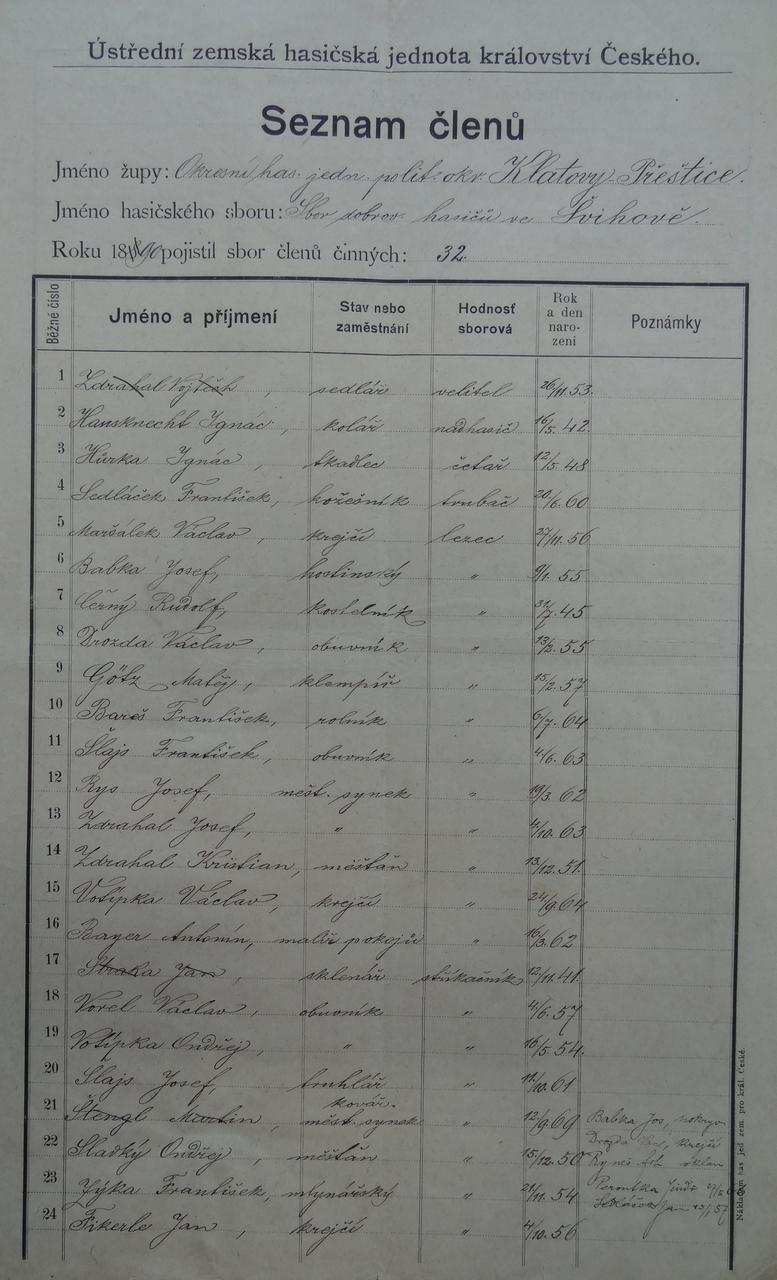 Ústřední zemská hasičská jednota království Českého.
Seznam členů
Jméno župy: Okresní has. jedn. polit. okr. Klatovy-Přeštice.
Jméno hasičského sboru: Sbor dobrov. hasičů ve Švihově.
Roku 1890 pojistil sbor členů činných: 32.
Běžné číslo
Jméno a příjmení
Stav nebo zaměstnání
Hodnosť sborová
Rok a den narození
Poznámky
1 Zdrahal Vojtěch, sedlář velitel 26/11. 53.
2 Hausknecht Ignác, kolář nadhasič 16/5. 42.
3 Hůrka Ignác, tkadlec četař 12/5. 48
4 Sedláček František, kožešník trubač 20/6. 60
5 Maršálek Václav, krejčí lezec 27/11. 56
6 Babka Josef, hostinský " 9/1. 55
7 Černý Rudolf, kostelník " 31/7. 45
8 Drozda Václav, obuvník " 13/2. 55
9 Götz Matěj, klempíř " 15/2. 57
10 Bareš František, rolník " 6/7. 64
11 Šlajs František, obuvník " 4/6. 63
12 Rys Josef, měšt. synek " 19/3. 62
13 Zdrahal Josef, " " 4/10. 63
14 Zdrahal Kristian, měšťan " 13/12. 51.
15 Votípka Václav, krejčí " 24/9. 64
16 Bayer Antonín, malíř pokojů " 16/3. 62
17 Straka Jan, sklenář stříkačník 12/11. 41.
18 Vorel Václav, obuvník " 4/6. 57
19 Votípka Ondřej, " " 16/5. 54.
20 Slajs Josef, truhlář " 11/10. 61
kovář.
21 Štengl Martin, měšt. synek " 12/9. 69 Babka Jos,
Drozda krejčí
22 Sladký Ondřej, měšťan " 15/12. 50 Ryneš
23 Zýka František, mlynářský " 21/11. 54 Peroutka
Sedláček Jan
24 Fikerle Jan, krejčí " 4/10. 56
Nákladem has. jed. zem. pro král. České.